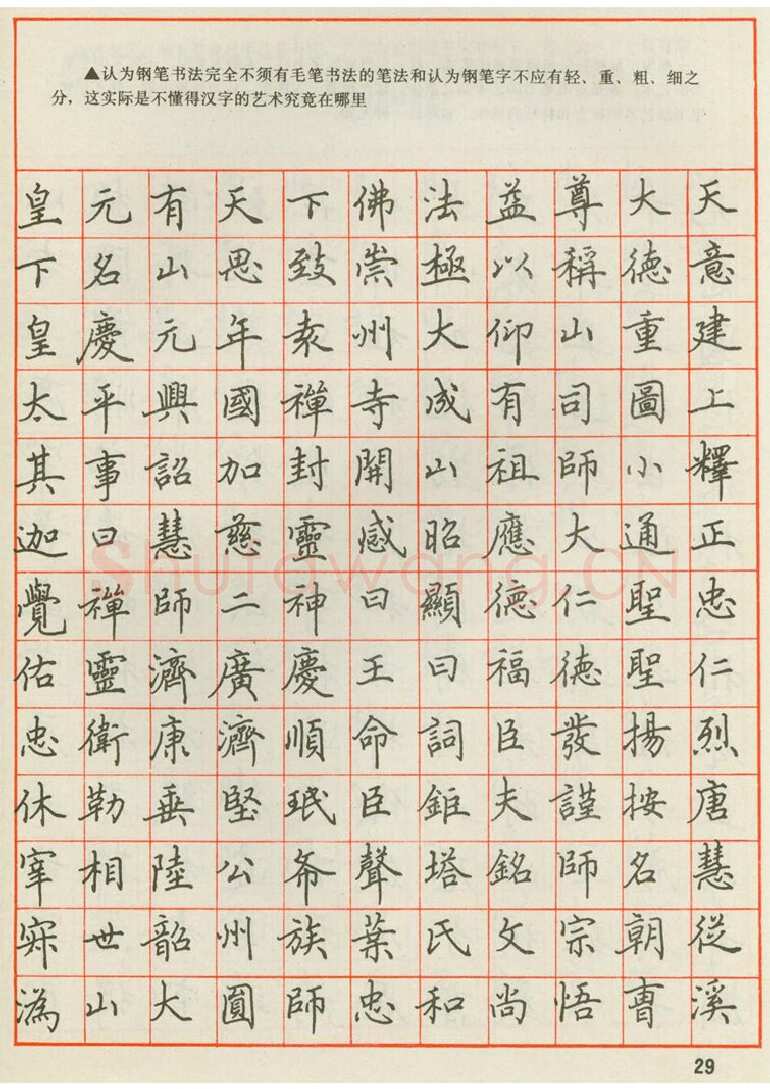 ▲认为钢笔书法完全不须有毛笔书法的笔法和认为钢笔字不应有轻、重、粗、细之
分，这实际是不懂得汉字的艺术究竟在哪里
皇元有天下佛法益尊大天
下名山思致崇極以稱德意
皇慶元年袁州大仰山重建
太平興國禪寺成有司圖上
其事詔加封開山祖師小釋
迦曰慧慈靈感昭應大通正
覺禪師二神曰顯德仁聖忠
佑靈濟廣慶王曰福德聖仁
忠衛康濟順命詞臣發揚烈
休勒垂堅珉臣鉅夫謹按唐
宰相陸公希聲塔銘師名慧
寂世韶州族葉氏文宗朝從
溈山大圓師忠和尚悟曹溪
Shufawang.CN
29